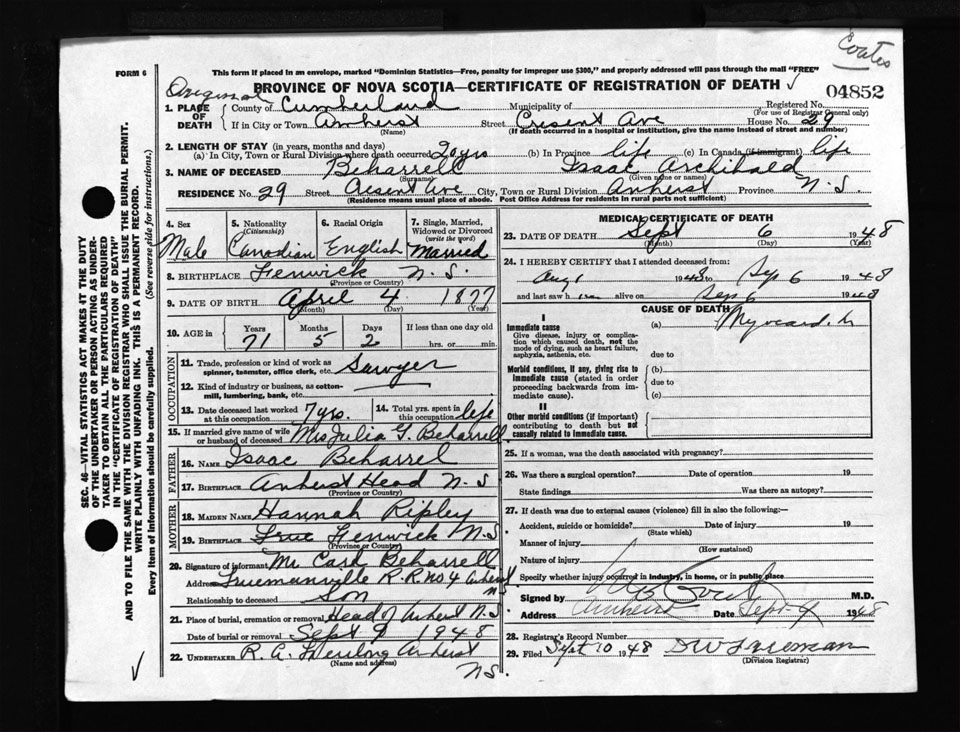 Coates
FORM 6
This form if placed in an envelope, marked "Dominion Statistics—Free, penalty for improper use $300," and properly addressed will pass through the mail "FREE"
Original PROVINCE OF NOVA SCOTIA—CERTIFICATE OF REGISTRATION OF DEATH
04852
1. PLACE OF DEATH
County of Cumberland Municipality of Registered No.
(For use of Registrar General only)
If in City or Town Amherst Street Cresent Ave House No. 29
(Name) (If death occurred in a hospital or institution, give the name instead of street and number)
2. LENGTH OF STAY (in years, months and days)
(a) In City, Town or Rural Division where death occurred 20 yrs (b) In Province life (c) In Canada (if immigrant) life
3. NAME OF DECEASED Beharrell Isaac Archibald
(Surname) (Given name or names)
RESIDENCE No. 29 Street Cresent Ave City, Town or Rural Division Amherst Province N.S.
(Residence means usual place of abode. Post Office Address for residents in rural parts not sufficient)
4. Sex Male
5. Nationality (Citizenship) Canadian
6. Racial Origin English
7. Single, Married, Widowed or Divorced (write the word) Married
8. BIRTHPLACE Fenwick N.S.
(Province or Country)
9. DATE OF BIRTH April 4 1877
(Month) (Day) (Year)
10. AGE in Years Months Days If less than one day old
71 5 2 hrs. or min.
OCCUPATION
11. Trade, profession or kind of work as spinner, teamster, office clerk, etc. Sawyer
12. Kind of industry or business, as cotton-mill, lumbering, bank, etc.
13. Date deceased last worked at this occupation 7 yrs. 14. Total yrs. spent in this occupation life
15. If married give name of wife or husband of deceased Mrs Julia G. Beharrell
FATHER
16. NAME Isaac Beharrel
17. BIRTHPLACE Amherst Head N.S
(Province or Country)
MOTHER
18. MAIDEN NAME Hannah Ripley
19. BIRTHPLACE Fenwick N.S
(Province or Country)
20. Signature of informant Mr Carl Beharrell
Address Truemanville R.R. No 4 Amherst N.S
Relationship to deceased Son
21. Place of burial, cremation or removal Head of Amherst N.S
Date of burial or removal Sept 9 1948
22. UNDERTAKER R. A. Amherst
(Name and address)
N.S.
MEDICAL CERTIFICATE OF DEATH
23. DATE OF DEATH Sept 6 1948
(Month) (Day) (Year)
24. I HEREBY CERTIFY that I attended deceased from:
Aug 1 1948 to Sep 6 1948
and last saw him alive on Sep 6 1948
CAUSE OF DEATH
I
Immediate cause
Give disease, injury or complication which caused death, not the mode of dying, such as heart failure, asphyxia, asthenia, etc.
(a)
due to
Morbid conditions, if any, giving rise to immediate cause (stated in order proceeding backwards from immediate cause).
(b)
due to
(c)
II
Other morbid conditions (if important) contributing to death but not causally related to immediate cause.
25. If a woman, was the death associated with pregnancy?
26. Was there a surgical operation? Date of operation 19
State findings Was there an autopsy?
27. If death was due to external causes (violence) fill in also the following:—
Accident, suicide or homicide? Date of injury 19
(State which)
Manner of injury
(How sustained)
Nature of injury
Specify whether injury occurred in industry, in home, or in public place
Signed by M.D.
Address Amherst Date Sept 9 1948
28. Registrar's Record Number
29. Filed Sept 10 1948 D W Trueman
(Division Registrar)
SEC. 46—VITAL STATISTICS ACT MAKES IT THE DUTY OF THE UNDERTAKER OR PERSON ACTING AS UNDERTAKER TO OBTAIN ALL THE PARTICULARS REQUIRED IN THE "CERTIFICATE OF REGISTRATION OF DEATH" AND TO FILE THE SAME WITH THE DIVISION REGISTRAR WHO SHALL ISSUE THE BURIAL PERMIT.
WRITE PLAINLY WITH UNFADING INK. THIS IS A PERMANENT RECORD.
Every item of Information should be carefully supplied. (See reverse side for instructions.)